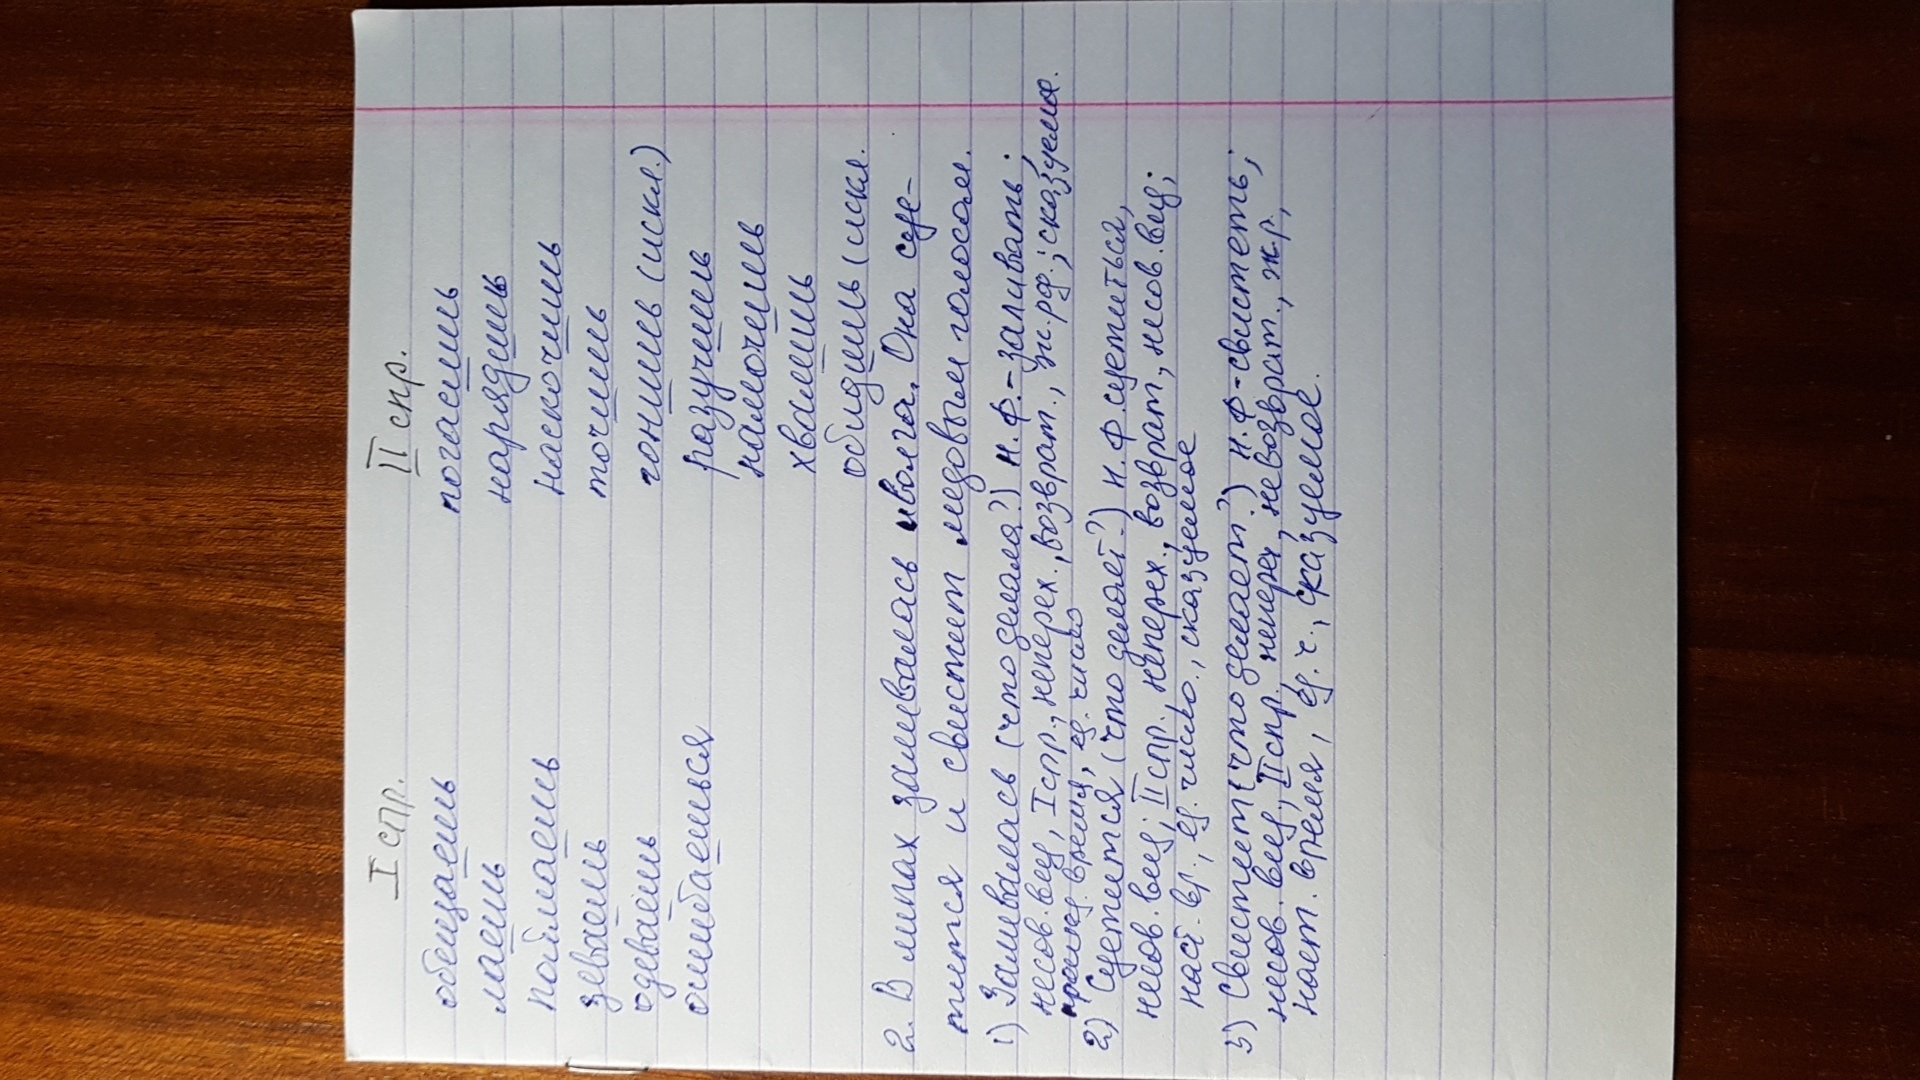 I спр.
обещаешь
лаешь
поймаешь
зеваешь
одеваешь
ошибаешься
II спр.
погасишь
нарядишь
наскочишь
точишь
гонишь (искл.)
разучишь
намочишь
хвалишь
обидишь (искл.
2. В липах заливалась иволга. Она суе-
тится и свистит медовым голосом.
1) Заливалась (что делала?) н.ф.-заливать;
несов.вид, I спр., неперех., возврат., ж.род.; сказуемое.
прошед. время, ед. число
2) Суетится (что делает?) н.ф. суетиться,
несов. вид; II спр., неперех., возврат., несов. вид;
наст. вр., ед. число., сказуемое
3) Свистит (что делает?) н.ф-свистеть;
несов. вид, II спр. неперех, невозврат., ж.р.,
наст. время, ед. ч., сказуемое.